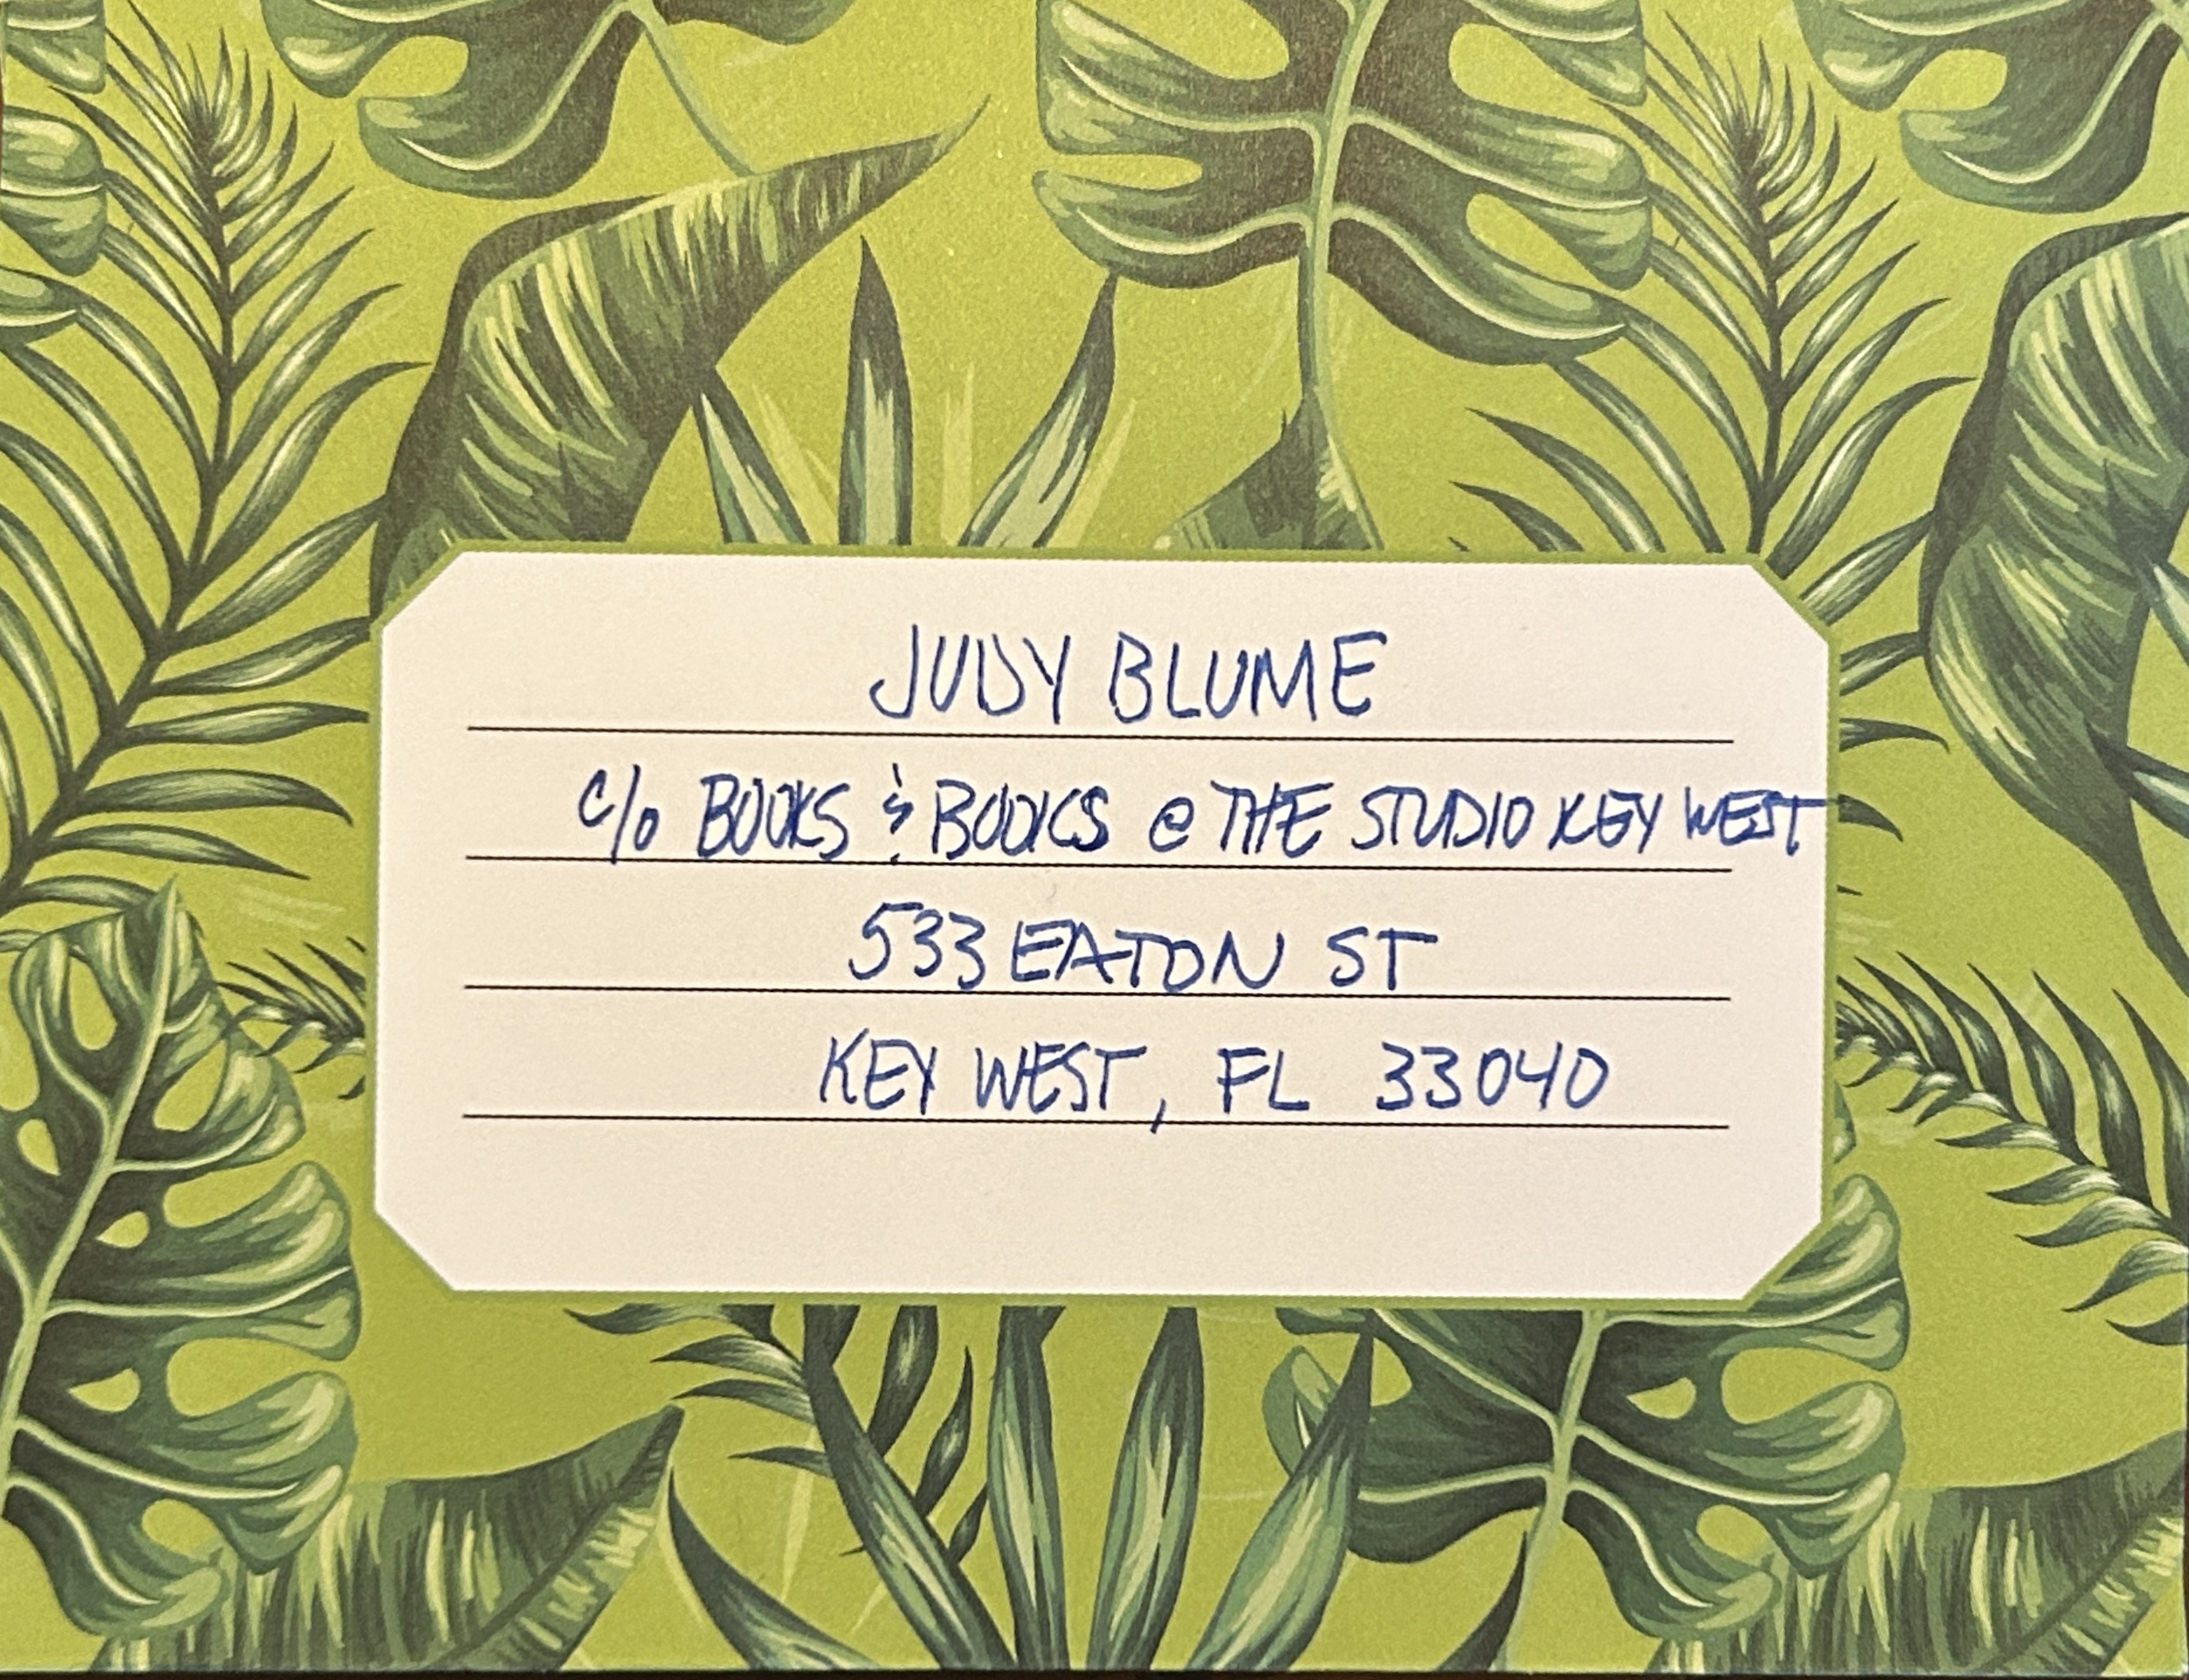 JUDY BLUME
c/o BOOKS & BOOKS @ THE STUDIO KEY WEST
533 EATON ST
KEY WEST, FL 33040